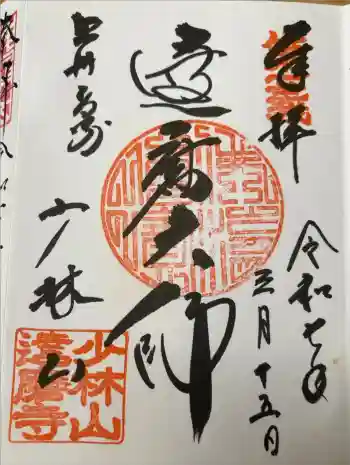 奉拝
令和七年
三月十五日
達磨大師
上州高崎
少林山
少林山
達磨寺